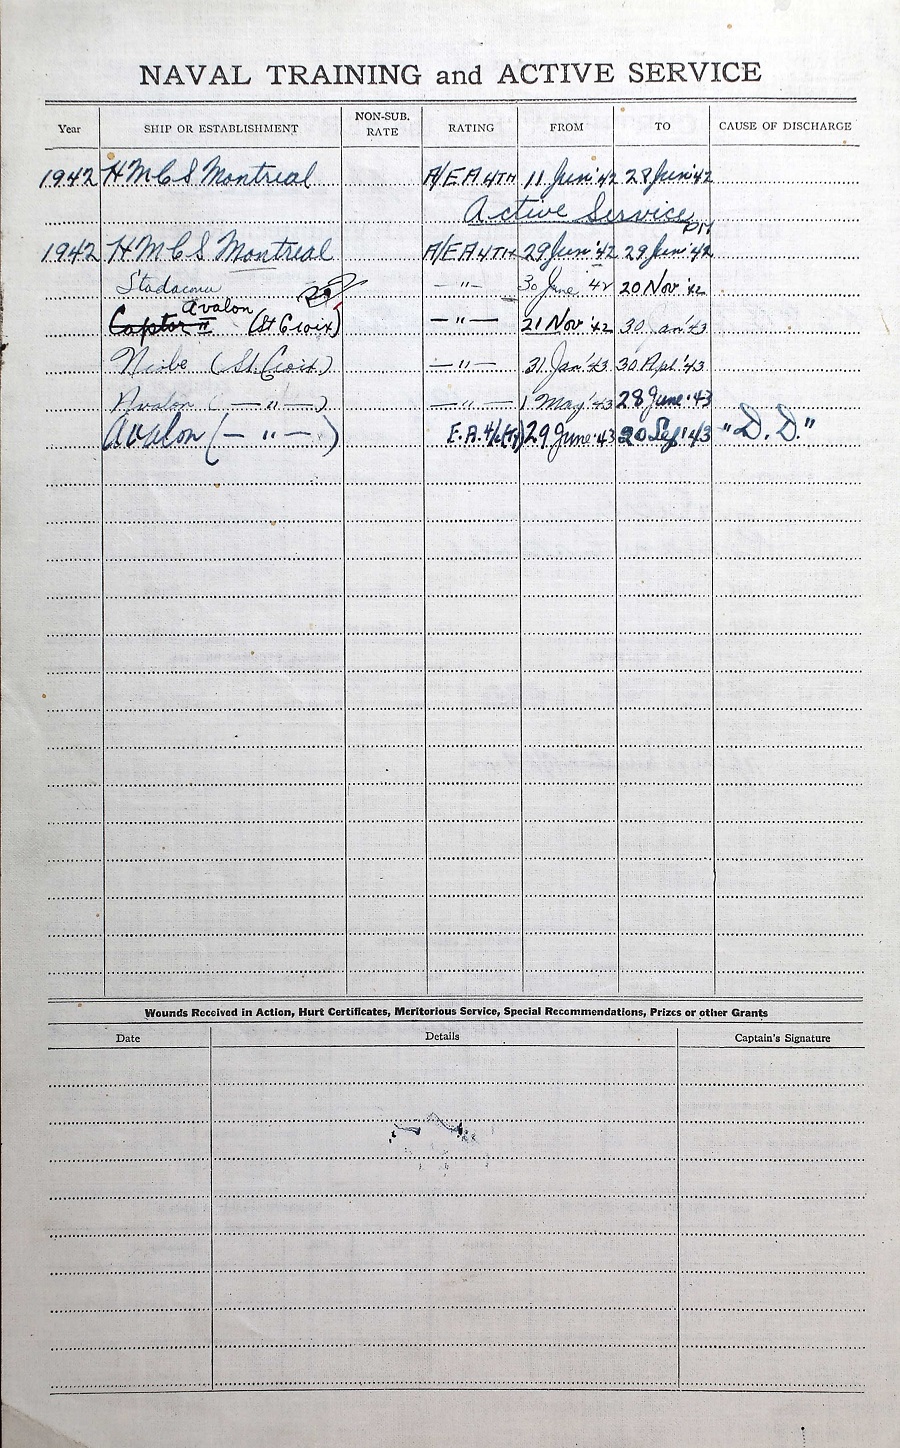 NAVAL TRAINING and ACTIVE SERVICE
Year SHIP OR ESTABLISHMENT NON-SUB. RATE RATING FROM TO CAUSE OF DISCHARGE
1942 HMCS Montreal A/EA 4TH 11 Jun '42 28 Jun '42
Active Service
1942 HMCS Montreal A/EA 4TH 29 Jun '42 29 Jun '42
Stadacona — " — 30 June '42 20 Nov '42
Avalon
Captor II (St Croix) — " — 21 Nov '42 30 Jan '43
Niobe (St. Croix) — " — 31 Jan '43 30 Apl. '43
Avalon ( — " — ) — " — 1 May '43 28 June '43
Avalon ( — " — ) E.A. 4/c 29 June '43 20 Sep '43 "D.D."
Wounds Received in Action, Hurt Certificates, Meritorious Service, Special Recommendations, Prizes or other Grants
Date Details Captain's Signature